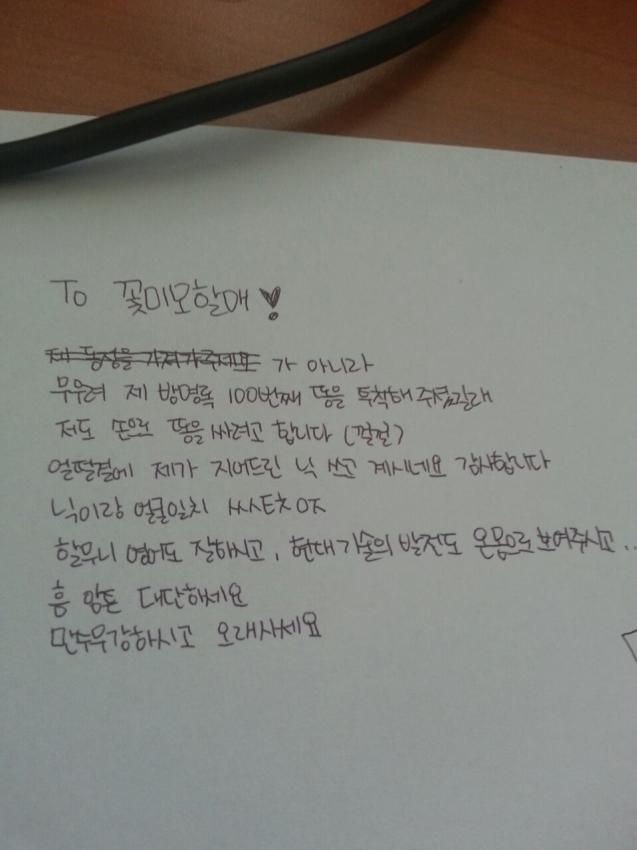 To 꽃미모할매♥
제 동정을 가져가주세요 가 아니라
무우려 제 방명록 100번째 똥을 투척해주셨길래
저도 손으로 똥을 싸려고 합니다 (껄껄)
얼떨결에 제가 지어드린 닉 쓰고 계시네요 감사합니다
닉이랑 얼굴일치
할무니 영어도 잘하시고, 현대기술의 발전도 온몸으로 보여주시고..
흠 암튼 대단하세요
만수우강하시고 오래사세요